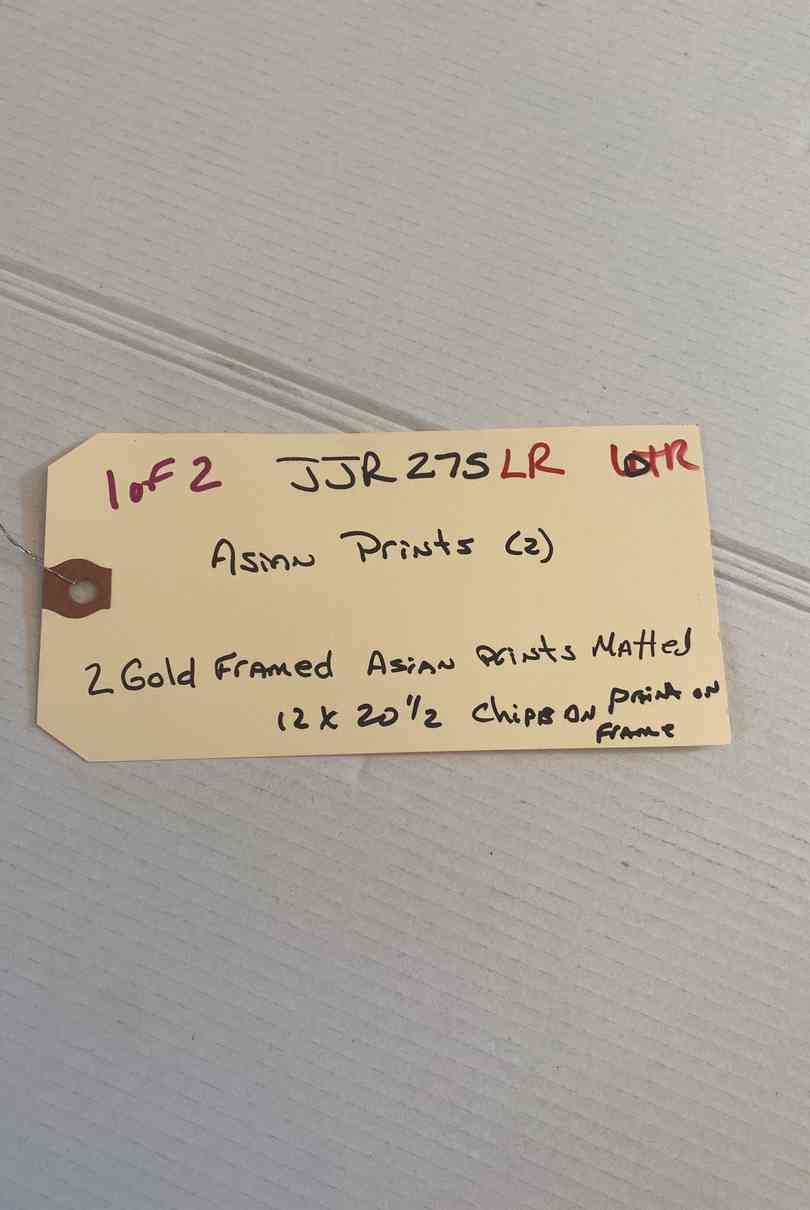 1 of 2 JJR 275 LR
Asian Prints (2)
2 Gold Framed Asian prints Matted
12 x 20 1/2 Chips on paint on
frame